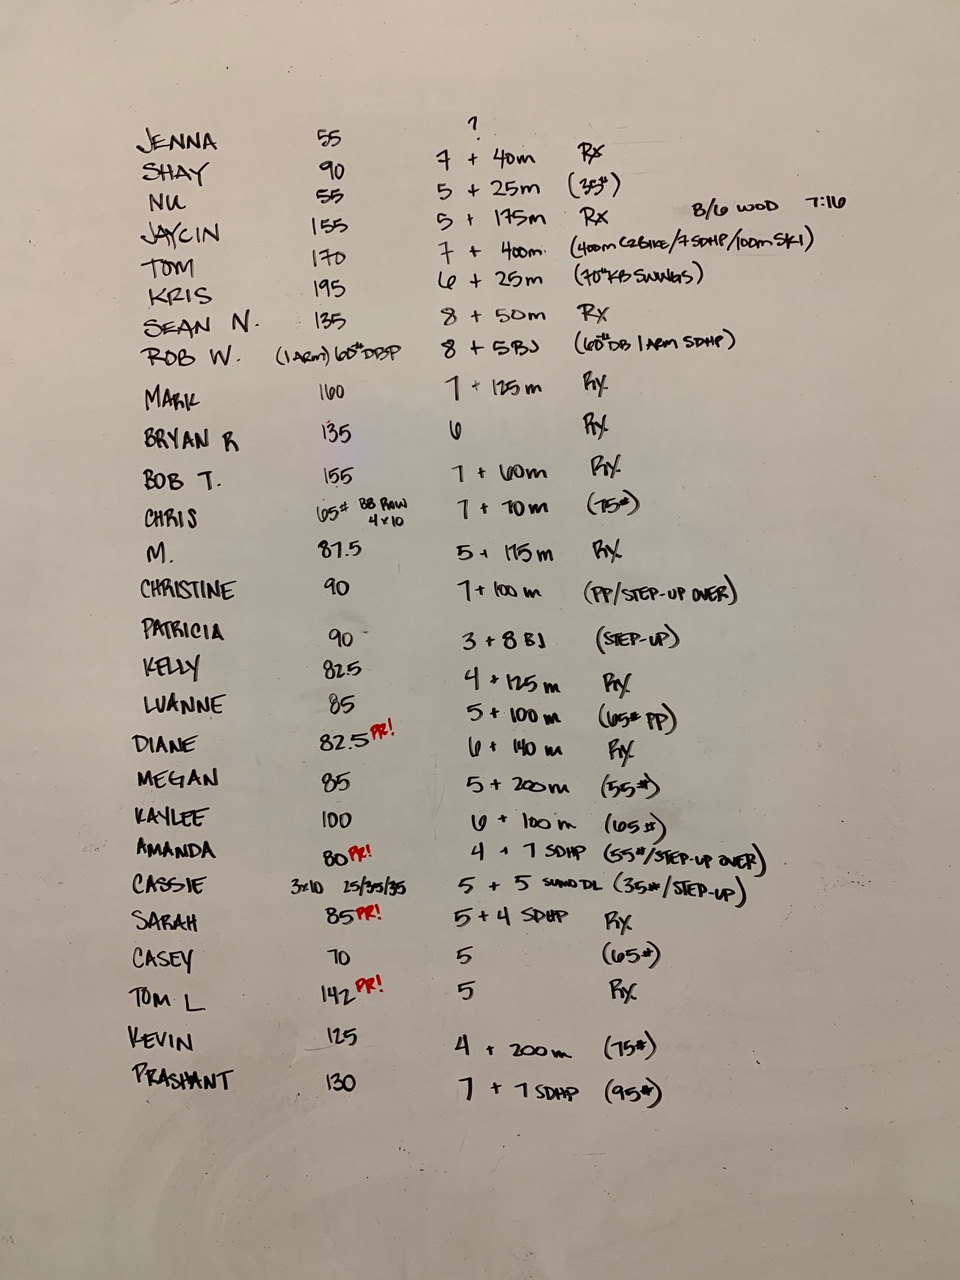 JENNA 55 ?
SHAY 90 7 + 40m Rx
NU 55 5 + 25m (35#)
JAYCIN 155 5 + 175m Rx B/6 WOD 7:16
TOM 170 7 + 400m (400m C2BIKE/7SDHP/100m SKI)
KRIS 195 6 + 25m (70# KB SWINGS)
SEAN N. 135 8 + 50m Rx
ROB W. (1 ARM) 60# DBP 8 + 5BJ (60# DB 1 ARM SDHP)
MARK 160 7 + 125m Rx
BRYAN R 135 6 Rx
BOB T. 155 7 + 60m Rx
CHRIS 65# BB ROW 4x10 7 + 70m (75#)
M. 87.5 5 + 175m Rx
CHRISTINE 90 7 + 100m (PP/STEP-UP OVER)
PATRICIA 90 3 + 8 BJ (STEP-UP)
KELLY 82.5 4 + 125m Rx
LUANNE 85 5 + 100m (65# PP)
DIANE 82.5 PR! 6 + 140m Rx
MEGAN 85 5 + 200m (55#)
KAYLEE 100 6 + 100m (65#)
AMANDA 80 PR! 4 + 7 SDHP (55#/STEP-UP OVER)
CASSIE 3x10 25/35/35 5 + 5 SUMO DL (35#/STEP-UP)
SARAH 85 PR! 5 + 4 SDHP Rx
CASEY 70 5 (65#)
TOM L 142 PR! 5 Rx
KEVIN 125 4 + 200m (75#)
PRASHANT 130 7 + 7 SDHP (95#)